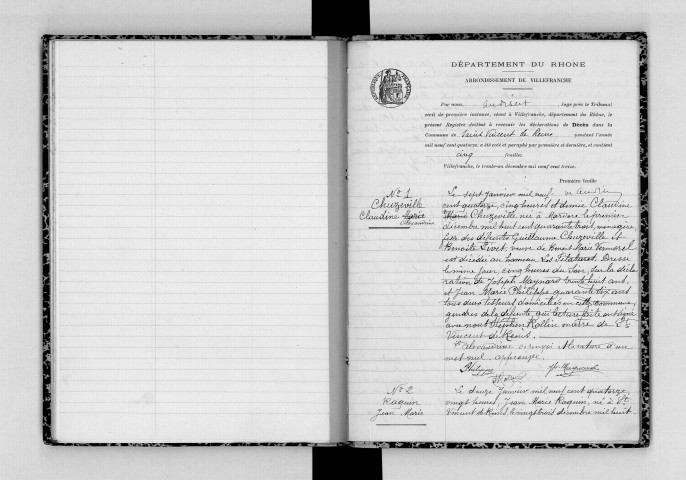 DÉPARTEMENT DU RHONE
ARRONDISSEMENT DE VILLEFRANCHE
Par nous, Juge près le Tribunal
civil de première instance, séant à Villefranche, département du Rhône, le
présent Registre destiné à recevoir les déclarations de Décès dans la
Commune de Saint Vincent de Reins pendant l'année
mil neuf cent quatorze, a été coté et paraphé par première et dernière, et contient
cinq feuilles.
Villefranche, le trente-un décembre mil neuf cent treize.
Première feuille
N° 1
Cheuzeville
Claudine Marie
Alexandrine
Le sept janvier mil neuf
cent quatorze, cinq heures et demie Claudine
Marie Cheuzeville née à Mardore le premier
décembre mil huit cent quarante trois, ménagère
fille des défunts Guillaume Cheuzeville et
Benoite Livet, veuve de Benoit Marie Vermorel
est décédée au hameau Les Filatures. Dressé
le même jour, cinq heures du soir, sur la décla
ration de Joseph Maynard trente huit ans,
et Jean Marie Philippe quarante dix ans
tous deux tisseurs domiciliés en cette commune,
gendres de la défunte, qui lecture faite ont signé
avec nous Stéphen Rollin maire de St
Vincent de Reins.
Alexandrine et rayé d'un
mot nul. approuvé.
Philippe
N° 2
Raquin
Jean Marie
Le douze janvier mil neuf cent quatorze
vingt heures, Jean Marie Raquin, né à St
Vincent de Reins, le vingt trois décembre mil huit